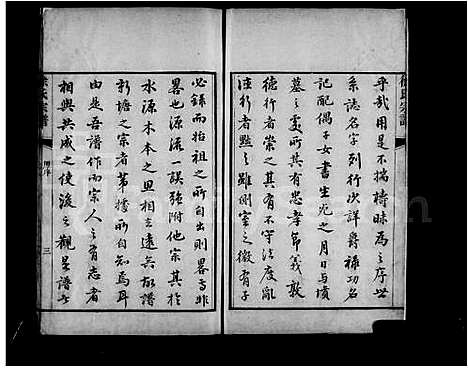 乎哉用是不揣梼昧為之序世
系誌名字列行次詳爵祿功名
記配偶子女書生死之月日与墳
墓之處所其有忠孝節義敦
德行者崇之其有不守法度亂
行者黜之雖側室之微有子
必錄而於祖之所自出則畧而非
畧也源流一誤強附他宗其於
水源木本之思相去遠矣故譜
新塘之宗者第據所自知焉耳
由是吾譜作而宗人之有志者
相與共成之使後之觀是譜者
徐氏宗譜
三